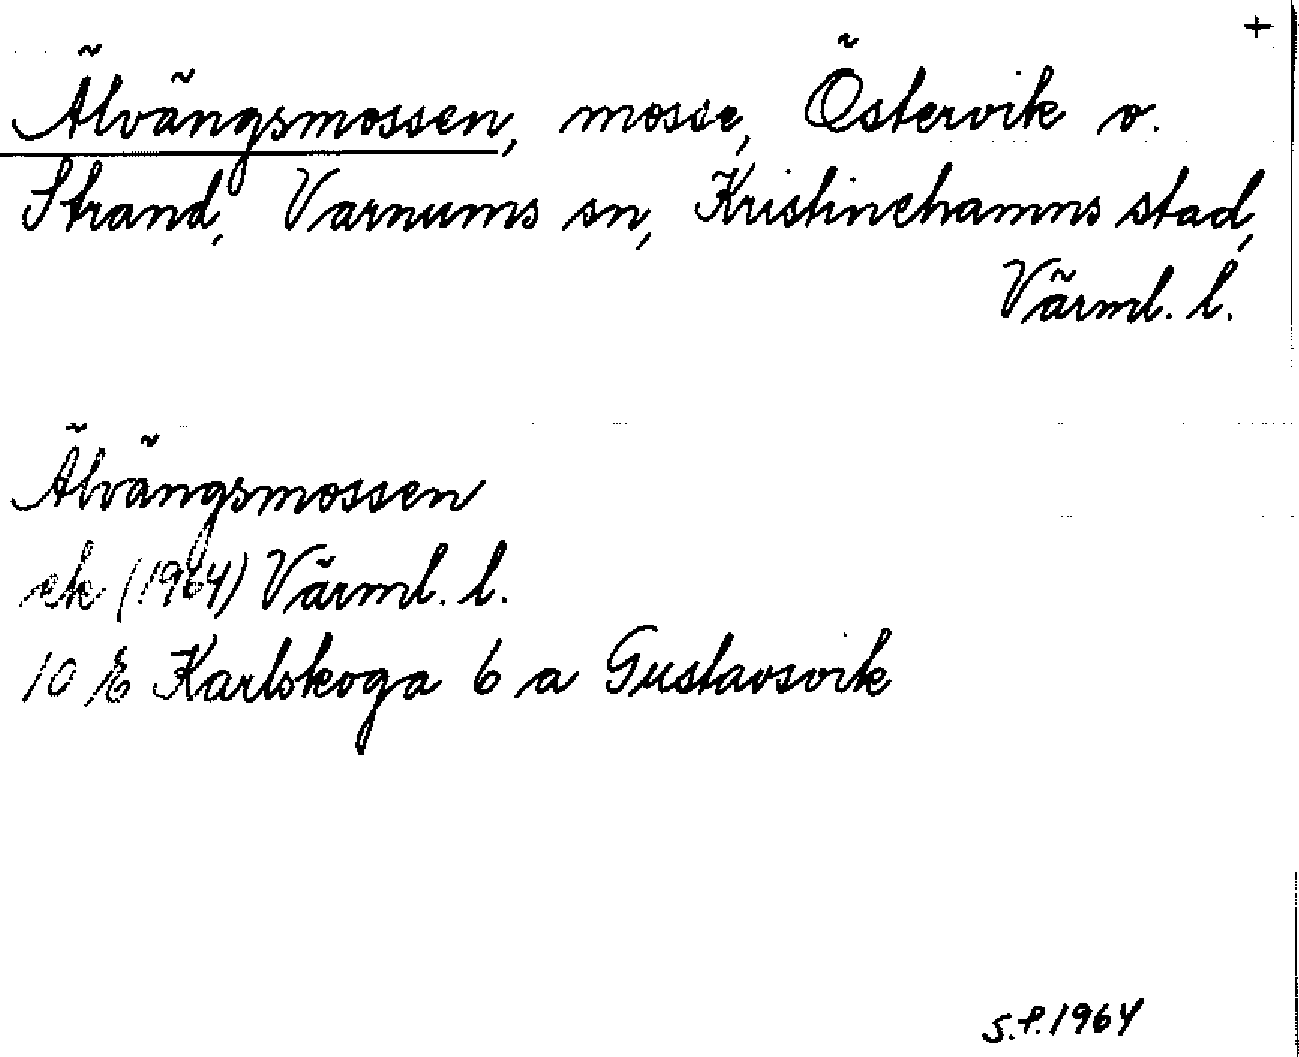 +
Älvängsmossen, mosse, Östervik o.
Strand, Varnums sn, Kristinehamns stad,
Värml. l.
Älvängsmossen
ek (1964) Värml. l.
10 E Karlskoga 6 a Gustavsvik
S.P. 1964